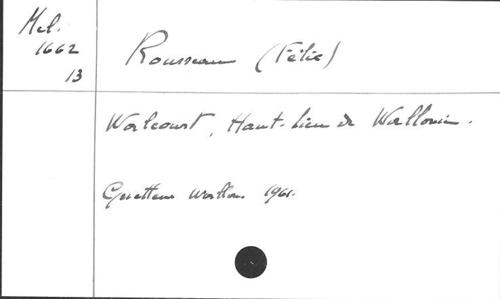 Mel.
1662
13
Rousseau (Félix)
Walcourt, Haut-lieu de Wallonie.
Guetteur wallon. 1961.